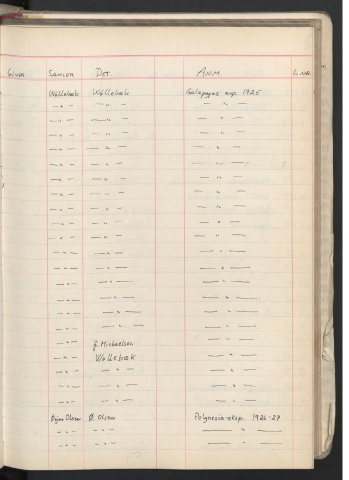 Giver Samler Det. Anm. L.nr.
Wollebæk Wollebæk Galapagos exp. 1925
— " — — " — — " —
— " — — " — — " —
— " — — " — — " —
— " — — " — — " —
— " — — " — — " —
— " — — " — — " —
— " — — " — — " —
— " — — " — — " —
— " — — " — — " —
— " — — " — — " —
— " — — " — — " —
— " — — " — — " —
— " — — " — — " —
— " — — " — — " —
— " — — " — — " —
— " — — " — — " —
— " — J. Michaelsen — " —
— " — Wollebæk — " —
— " — — " — — " —
— " — — " — — " —
— " — — " — — " —
Ørjan Olsen Ø. Olsen Polynesia-eksp. 1926-27
— " — — " — — " —
— " — — " — — " —